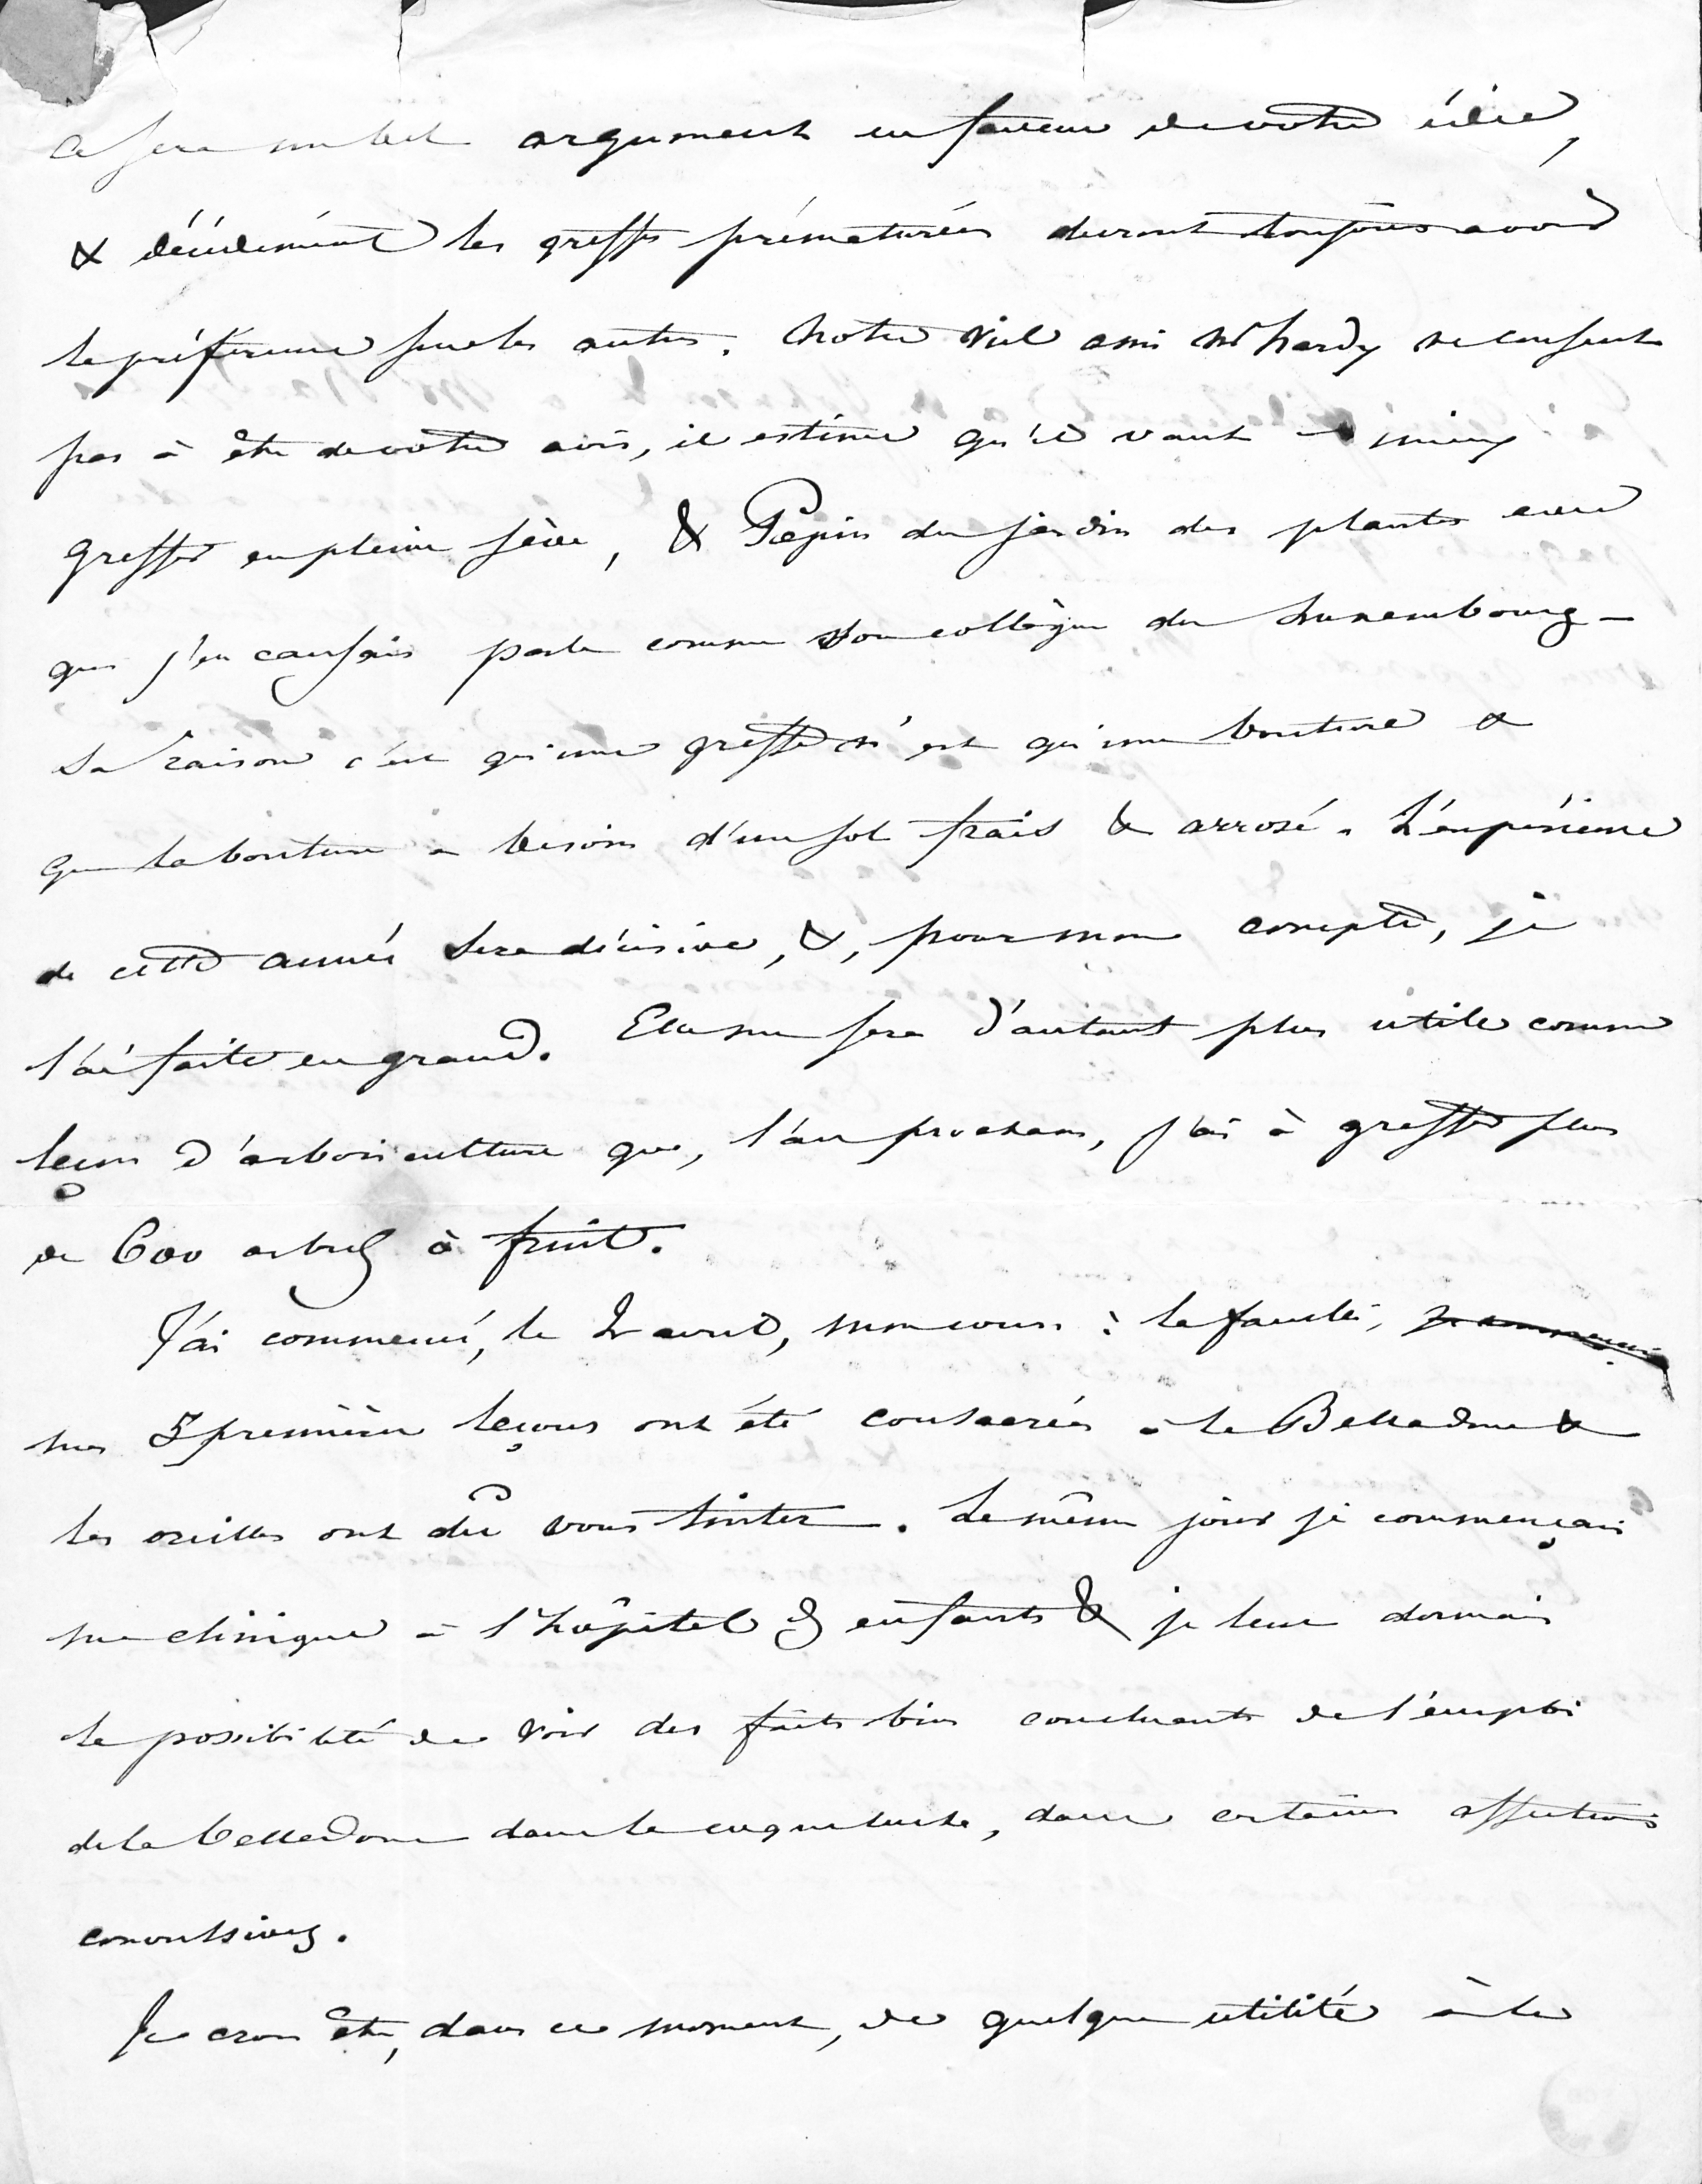 ce sera un bel argument en faveur de votre idée,
& décidément les greffes prématurées devront toujours avoir
la préférence sur les autres. Notre vieil ami Mr hardy ne consent
pas à être de votre avis, il estime qu'il vaut mieux
greffer en pleine sève, & Pépin du jardin des plantes avec
qui j'en causais parle comme son collègue du Luxembourg –
Sa raison c'est qu'une greffe n'est qu'une bouture &
que la bouture a besoin d'un sol frais & arrosé. L'expérience
de cette année sera décisive, &, pour mon compte, je
l'ai faite en grand. Elle me sera d'autant plus utile comme
leçon d'arboriculture que, l'an prochain, j'ai à greffer plus
de 600 arbres à fruit.
J'ai commencé, le 2 avril, mon cours à la faculté,
mes 5 premières leçons ont été consacrées à la Belladone &
les oreilles ont dû vous tinter. Le même jour je commençais
ma clinique à l'hôpital des enfants & je leur donnais
la possibilité de voir des faits bien concluants de l'emploi
de la belladone dans la coqueluche, dans certaines affections
convulsives.
Je crois être, dans ce moment, de quelque utilité à la